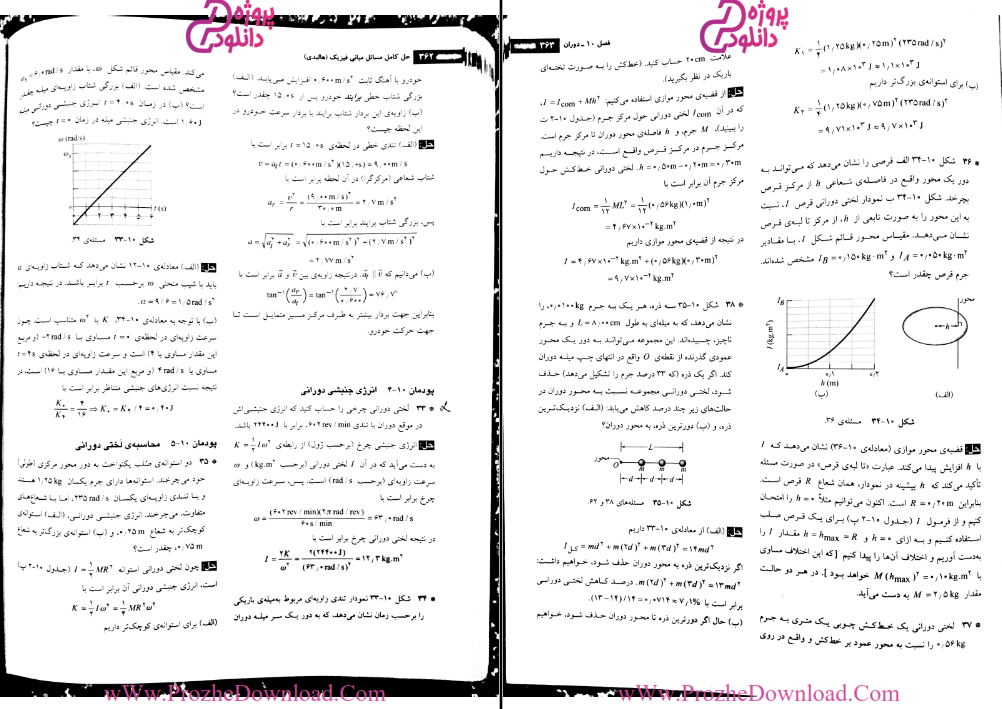 پروژه
دانلود
۳۶۲ حل کامل مسائل مبانی فیزیک (هالیدی)
خودرو با آهنگ ثابت ۰٫۶۰۰ m/s² افزایش می‌یابد. (الف)
بزرگی شتاب خطی برایند خودرو پس از ۱۵٫۰s چقدر است؟
(ب) زاویه‌ی این بردار شتاب برایند با بردار سرعت خودرو در
این لحظه چیست؟
حل: (الف) تندی خطی در لحظه‌ی t = ۱۵٫۰s برابر است با
v = aₜt = (۰٫۶۰۰ m/s²)(۱۵٫۰s) = ۹٫۰۰ m/s
شتاب شعاعی (مرکزگرا) در آن لحظه برابر است با
aᵣ = v²/r = (۹٫۰۰ m/s)²/۳۰٫۰m = ۲٫۷ m/s²
پس، بزرگی شتاب برایند برابر است با
a = √(aₜ² + aᵣ²) = √((۰٫۶۰۰ m/s²)² + (۲٫۷ m/s²)²
= ۲٫۷۷ m/s²
(ب) می‌دانیم که
برابر است با
tan⁻¹(aᵣ/aₜ) = tan⁻¹(۲٫۷/۰٫۶۰۰) = ۷۷٫۶°
بنابراین جهت بردار بیشتر به طرف مرکز مسیر متمایل است تا
جهت حرکت خودرو.
پودمان ۱۰-۴ انرژی جنبشی دورانی
* ۳۳ لختی دورانی چرخی را حساب کنید که انرژی جنبشی‌اش
در موقع دوران با تندی ۶۰۲ rev/min، برابر با ۲۴۴۰۰ J باشد.
حل: انرژی جنبشی چرخ (برحسب ژول) از رابطه‌ی K = ½Iω²
به دست می‌آید که در آن I لختی دورانی (برحسب kg.m²) و ω
سرعت زاویه‌ای (برحسب rad/s) است. پس، سرعت زاویه‌ای
چرخ برابر است با
ω = (۶۰۲ rev/min)(۲π rad/rev)/۶۰s/min = ۶۳٫۰ rad/s
در نتیجه لختی دورانی چرخ برابر است با
I = ۲K/ω² = ۲(۲۴۴۰۰ J)/(۶۳٫۰ rad/s)² = ۱۲٫۳ kg.m²
* ۳۴ شکل ۱۰-۳۳ نمودار تندی زاویه‌ای مربوط به‌میله‌ی باریکی
را برحسب زمان نشان می‌دهد، که به دور یک سر میله دوران
می‌کند. مقیاس محور قائم شکل ω، با مقدار
مشخص شده است. (الف) بزرگی شتاب زاویه‌ای میله چقدر
است؟ (ب) در زمان t = ۴٫۰s انرژی جنبشی دورانی میله
۱٫۶۰ J است. انرژی جنبشی میله در زمان t = ۰ چیست؟
ω (rad/s)
t (s)
شکل ۱۰-۳۳ مسئله‌ی ۳۴.
حل: (الف) معادله‌ی ۱۰-۱۲ نشان می‌دهد که شتاب زاویه‌ای α
باید با شیب منحنی ω برحسب t برابر باشد. در نتیجه داریم:
α = ۹/۶ = ۱٫۵ rad/s².
(ب) با توجه به معادله‌ی ۱۰-۳۴، K با ω² متناسب است. چون
سرعت زاویه‌ای در لحظه‌ی t = ۰ مساوی با -۲ rad/s (و مربع
این مقدار مساوی با ۴) است و سرعت زاویه‌ای در لحظه‌ی t = ۴s
مساوی با ۴ rad/s (و مربع این مقدار مساوی با ۱۶) است، در
نتیجه نسبت انرژی‌های جنبشی متناظر برابر است با
K₀/K₄ = ۴/۱۶ ⇒ K₀ = K₄/۴ = ۰٫۴۰ J
پودمان ۱۰-۵ محاسبه‌ی لختی دورانی
* ۳۵ دو استوانه‌ی صلب یکنواخت به دور محور مرکزی (طولی)
خود می‌چرخند. استوانه‌ها دارای جرم یکسان ۱٫۲۵ kg هستند
و با تندی زاویه‌ای یکسان ۲۳۵ rad/s، اما با شعاع‌های
متفاوت، می‌چرخند. انرژی جنبشی دورانی، (الف) استوانه‌ی
کوچک‌تر به شعاع ۰٫۲۵ m، و (ب) استوانه‌ی بزرگ‌تر به شعاع
۰٫۷۵ m، چقدر است؟
حل: چون لختی دورانی استوانه I = ½MR² (جدول ۱۰-۲ پ)
است، انرژی جنبشی دورانی آن برابر است با
K = ½Iω² = ¼MR²ω²
(الف) برای استوانه‌ی کوچک‌تر داریم
www.ProzheDownload.Com
پروژه
دانلود
فصل ۱۰ ـ دوران ۳۶۳
K₁ = ¼(۱٫۲۵ kg)(۰٫۲۵ m)²(۲۳۵ rad/s)²
= ۱٫۰۸×۱۰³ J ≈ ۱٫۱×۱۰³ J
(ب) برای استوانه‌ی بزرگ‌تر داریم
K₂ = ¼(۱٫۲۵ kg)(۰٫۷۵ m)²(۲۳۵ rad/s)²
= ۹٫۷۱×۱۰³ J ≈ ۹٫۷×۱۰³ J
* ۳۶ شکل ۱۰-۳۴ الف قرصی را نشان می‌دهد که می‌تواند به
دور یک محور واقع در فاصله‌ی شعاعی h از مرکز قرص
بچرخد. شکل ۱۰-۳۴ ب نمودار لختی دورانی قرص I، نسبت
به این محور را به صورت تابعی از h، از مرکز تا لبه‌ی قرص
نشان می‌دهد. مقیاس محور قائم شکل I، با مقادیر
I_A = ۰٫۰۵۰ kg·m² و I_B = ۰٫۱۵۰ kg·m² مشخص شده‌اند.
جرم قرص چقدر است؟
محور
h
(الف)
I_B
I (kg.m²)
I_A
۰ ۰٫۱ ۰٫۲
h (m)
(ب)
شکل ۱۰-۳۴ مسئله‌ی ۳۶.
حل: قضیه‌ی محور موازی (معادله‌ی ۱۰-۳۶) نشان می‌دهد که I
با h افزایش پیدا می‌کند. عبارت «تا لبه‌ی قرص» در صورت مسئله
تأکید می‌کند که h بیشینه در نمودار، همان شعاع R قرص است.
بنابراین R = ۰٫۲۰ m است. اکنون می‌توانیم مثلاً h = ۰ را امتحان
کنیم و از فرمول I (جدول ۱۰-۲ پ) برای یک قرص صلب
استفاده کنیم و به ازای h = ۰ و h = h_max = R مقدار I را
به‌دست آوریم و اختلاف آن‌ها را پیدا کنیم [که این اختلاف مساوی
با M(h_max)² = ۰٫۱۰ kg.m² خواهد بود]. در هر دو حالت
مقدار M = ۲٫۵ kg به دست می‌آید.
* ۳۷ لختی دورانی یک خط‌کش چوبی یک متری به جرم
۰٫۵۶ kg را نسبت به محور عمود بر خط‌کش و واقع در روی
علامت ۲۰cm حساب کنید. (خط‌کش را به صورت تخته‌ای
باریک در نظر بگیرید).
حل: از قضیه‌ی محور موازی استفاده می‌کنیم: I = I_com + Mh²،
که در آن I_com لختی دورانی حول مرکز جرم (جدول ۱۰-۲ ت
را ببینید)، M جرم، و h فاصله‌ی محور دوران تا مرکز جرم است.
مرکز جرم در مرکز قرص واقع است، در نتیجه داریم
h = ۰٫۵۰m − ۰٫۲۰m = ۰٫۳۰m. لختی دورانی خط‌کش حول
مرکز جرم آن برابر است با
I_com = ۱/۱۲ ML² = ۱/۱۲ (۰٫۵۶ kg)(۱٫۰ m)²
= ۴٫۶۷×۱۰⁻² kg.m²
در نتیجه از قضیه‌ی محور موازی داریم
I = ۴٫۶۷×۱۰⁻² kg.m² + (۰٫۵۶ kg)(۰٫۳۰ m)²
= ۹٫۷×۱۰⁻² kg.m²
* ۳۸ شکل ۱۰-۳۵ سه ذره، هر یک به جرم ۰٫۰۱۰۰ kg، را
نشان می‌دهد، که به میله‌ای به طول L = ۸٫۰۰ cm و به جرم
ناچیز، چسبیده‌اند. این مجموعه می‌تواند به دور یک محور
عمودی گذرنده از نقطه‌ی O واقع در انتهای چپ میله دوران
کند. اگر یک ذره (که ۳۳ درصد جرم را تشکیل می‌دهد) حذف
شود، لختی دورانی مجموعه نسبت به محور دوران در
حالت‌های زیر چند درصد کاهش می‌یابد: (الف) نزدیک‌ترین
ذره، و (ب) دورترین ذره، به محور دوران؟
L
محور
O
m m m
d d d
شکل ۱۰-۳۵ مسئله‌های ۳۸ و ۶۲.
حل: (الف) از معادله‌ی ۱۰-۳۳ داریم
کل I = md² + m(۲d)² + m(۳d)² = ۱۴md²
اگر نزدیک‌ترین ذره به محور دوران حذف شود، خواهیم داشت:
m(۲d)² + m(۳d)² = ۱۳md². درصد کاهش لختی دورانی
برابر است با (۱۳−۱۴)/۱۴ = ۰٫۰۷۱۴ ≈ ۷٫۱%.
(ب) حال اگر دورترین ذره تا محور دوران حذف شود، خواهیم
www.ProzheDownload.Com